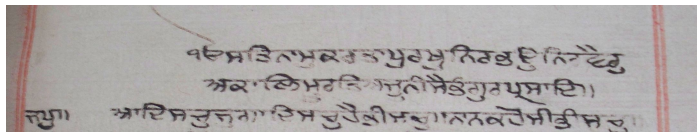 ੧ਓਸਤਿਨਾਮੁਕਰਤਾਪੁਰਖੁਨਿਰਭਉਨਿਰਵੈਰੁ
ਅਕਾਲਮੂਰਤਿਅਜੂਨੀਸੈਭੰਗੁਰਪ੍ਰਸਾਦਿ॥
ਜਪੁ॥ ਆਦਿਸਚੁਜੁਗਾਦਿਸਚੁਹੈਭੀਸਚੁ॥ਨਾਨਕਹੋਸੀਭੀਸਚੁ